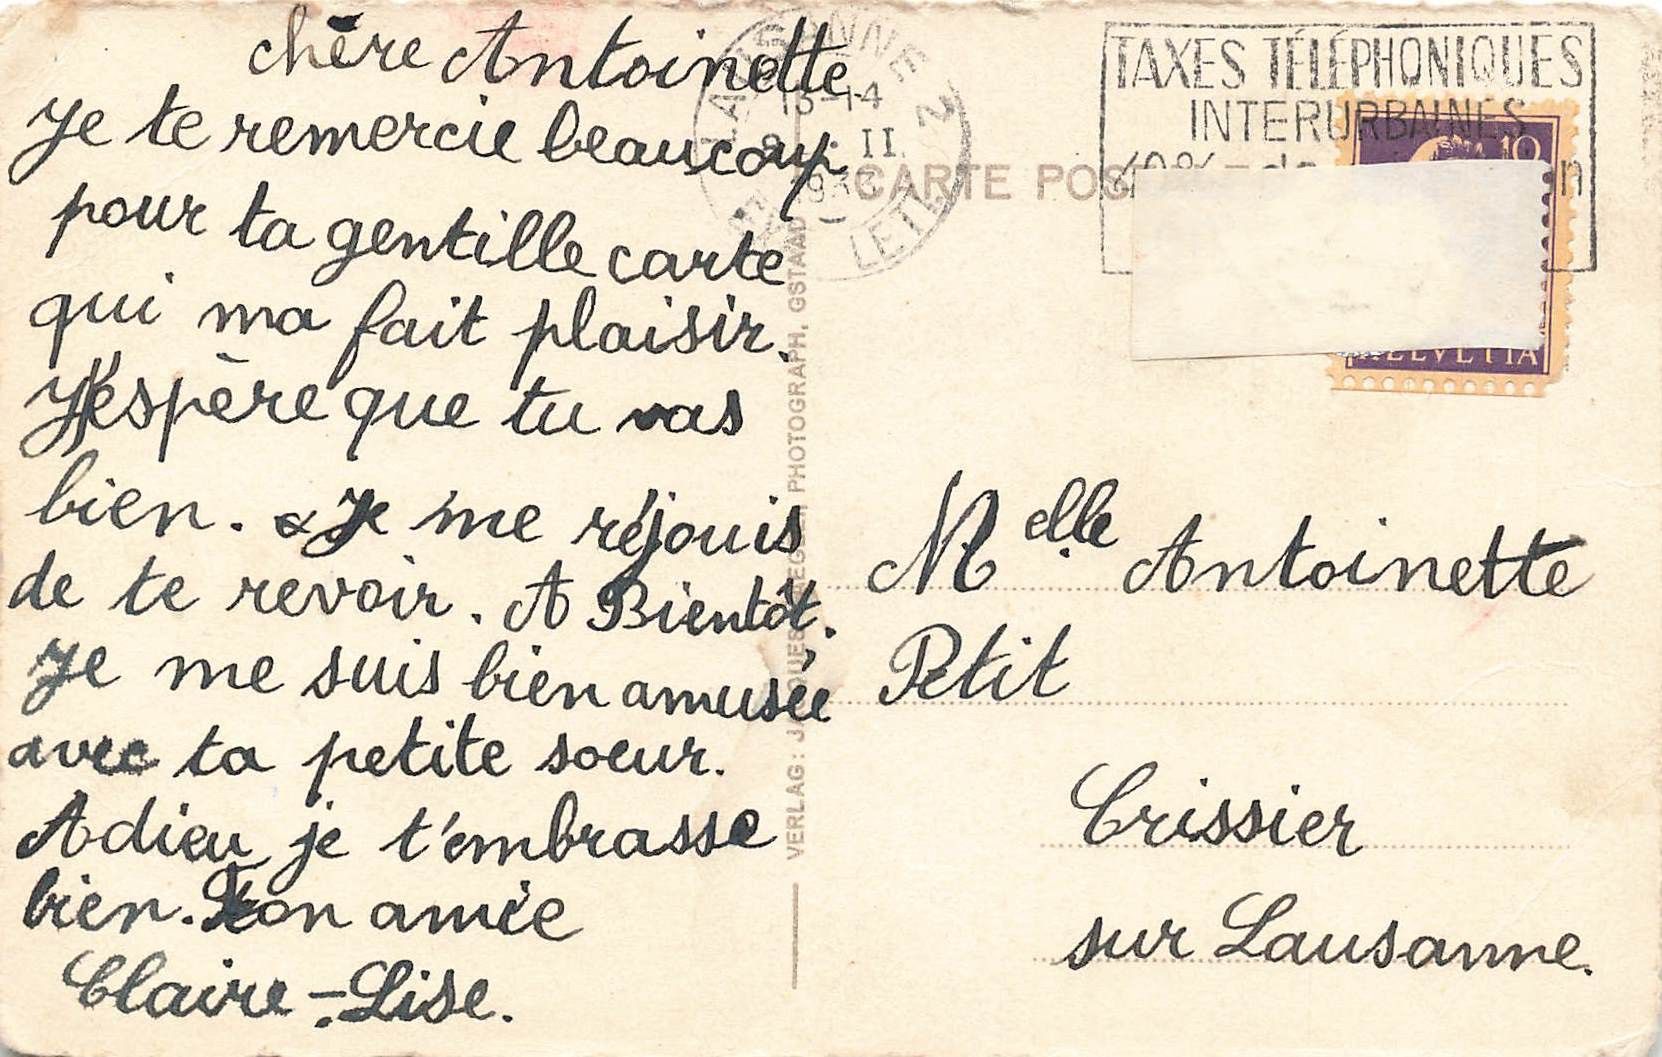 chère Antoinette
Je te remercie beaucoup
pour ta gentille carte
qui ma fait plaisir.
J'espère que tu vas
bien. Je me réjouis
de te revoir. A Bientôt.
Je me suis bien amusée
avec ta petite soeur.
Adieu je t'embrasse
bien. Ton amie
Claire-Lise.
VERLAG: PHOTOGRAPH, GSTAAD
CARTE POS
LAUSANNE 2
II
LET
TAXES TÉLÉPHONIQUES
INTERURBAINES
10
HELVETIA
Melle Antoinette
Petit
Crissier
sur Lausanne.